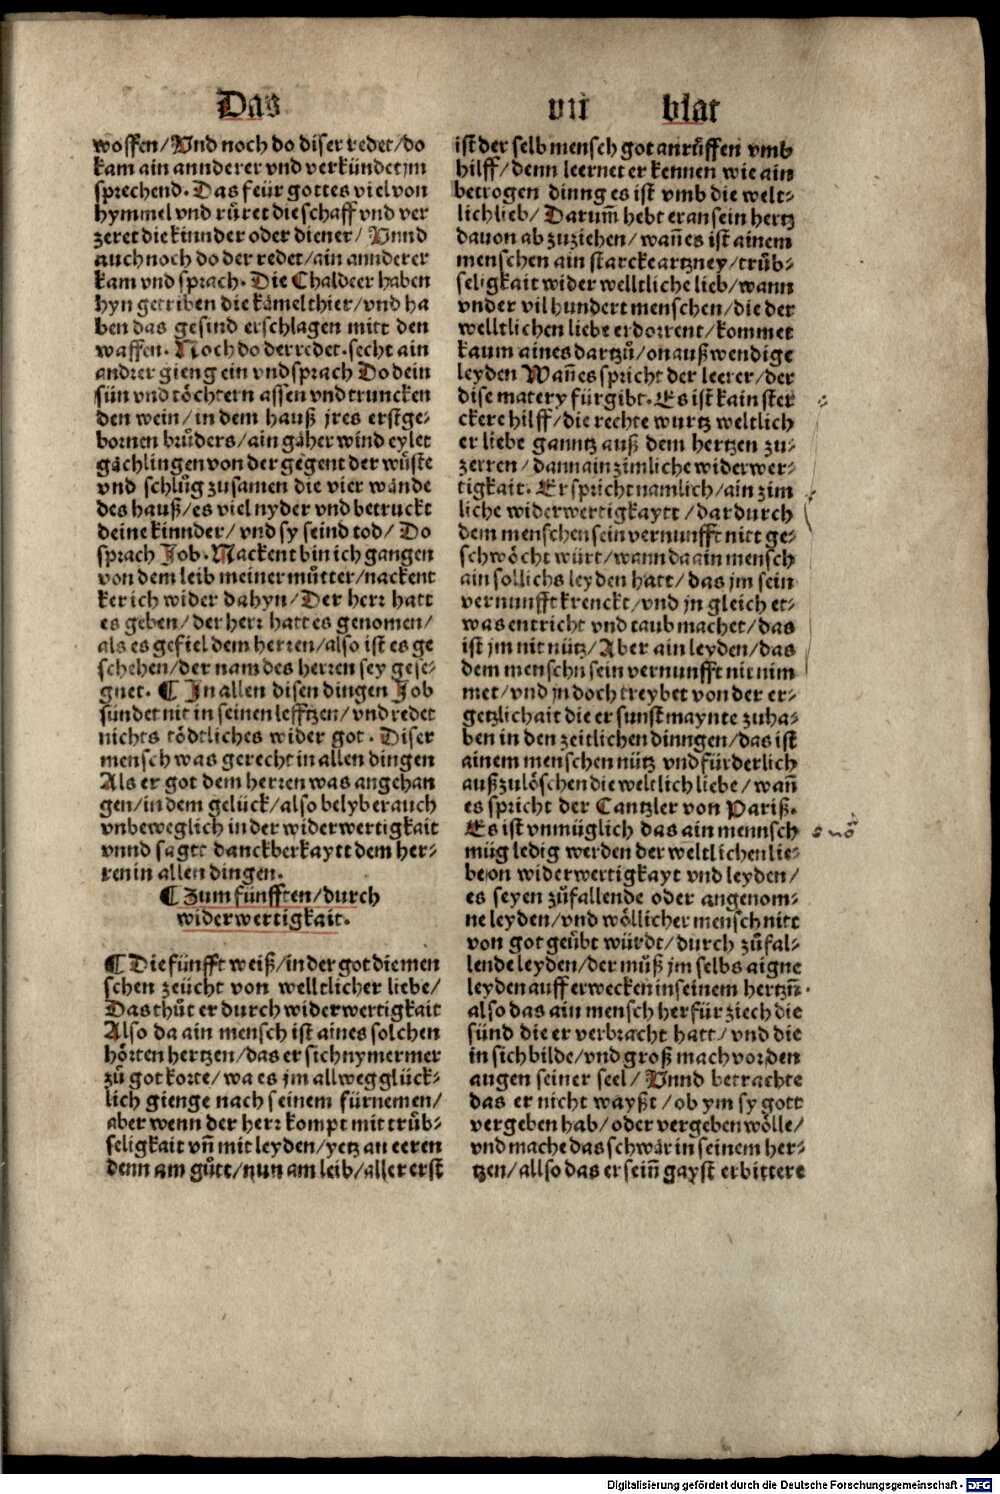 Das vii blat
woffen/Vnd noch do diser redet/do
kam ain annderer vnd verkündet jm
sprechend. Das feür gottes viel von
hymmel vnd rüret die schaff vnd ver
zeret die kinnder oder diener/ Vnnd
auch noch do der redet/ain annderer
kam vnd sprach. Die Chaldeer haben
hyn getriben die kämelthier/vnd ha
ben das gesind erschlagen mitt den
waffen. Noch do der redet. secht ain
andrer gieng ein vnd sprach Do dein
sün vnd töchtern assen vnd truncken
den wein/in dem hauß jres erstge⸗
bornen brůders/ain gäher wind eylet
gächlingen von der gegent der wüste
vnd schlůg zusamen die vier wände
des hauß/es viel nyder vnd betruckt
deine kinnder/vnd sy seind tod/ Do
sprach Job. Nackent bin ich gangen
von dem leib meiner můtter/nackent
ker ich wider dahyn/Der herr hatt
es geben/der herr hatt es genomen/
als es gefiel dem herren/also ist es ge
schehen/der nam des herren sey gese⸗
gnet. ¶ In allen disen dingen Job
sündet nit in seinen lefftzen/vnd redet
nichts tödtliches wider got. Diser
mensch was gerecht in allen dingen
Als er got dem herren was angehan
gen/in dem gelück/also belyber auch
vnbeweglich in der widerwertigkait
vnnd sagtt danckberkaytt dem her⸗
ren in allen dingen.
¶ Zum fünfften/durch
widerwertigkait.
¶ Die fünfft weiß/in der got die men
schen zeücht von welltlicher liebe/
Das thůt er durch widerwertigkait
Also da ain mensch ist aines solchen
hörten hertzen/das er sich nymermer
zů got korte/wa es jm allweg glück⸗
lich gienge nach seinem fürnemen/
aber wenn der herr kompt mit trüb⸗
seligkait vn̄ mit leyden/yetz an eeren
denn am gůtt/nun am leib/aller erst
ist der selb mensch got anrůffen vmb
hilff/denn leernet er kennen wie ain
betrogen dinng es ist vmb die welt⸗
lich lieb/ Darum̄ hebt er an sein hertz
dauon ab zuziehen/wan̄ es ist ainem
menschen ain starcke artzney/trüb⸗
seligkait wider welltliche lieb/wann
vnder vil hundert menschen/die der
welltlichen liebe erdorrent/kommet
kaum aines dartzů/on außwendige
leyden Wan̄ es spricht der leerer/der
dise matery fürgibt. Es ist kain ster
ckere hilff/die rechte wurtz weltlich
er liebe ganntz auß dem hertzen zu⸗
zerren/dann ain zimliche widerwer⸗
tigkait. Er spricht namlich/ain zim
liche widerwertigkaytt/dardurch
dem menschen sein vernunfft nitt ge⸗
schwöcht würt/wann da ain mensch
ain sollichs leyden hatt/das jm sein
vernunfft krenckt/vnd jn gleich et⸗
was entricht vnd taub machet/das
ist jm nit nütz/Aber ain leyden/das
dem menschn sein vernunfft nit nim
met/vnd jn doch treybet von der er⸗
getzlichait die er sunst maynte zuha⸗
ben in den zeitlichen dinngen/das ist
ainem menschen nütz vnd fürderlich
außzulöschen die weltlich liebe/wan̄
es spricht der Cantzler von Pariß.
Es ist vnmüglich das ain mennsch
müg ledig werden der weltlichen lie⸗
be/on widerwertigkayt vnd leyden/
es seyen zůfallende oder angenom⸗
ne leyden/vnd wöllicher mensch nitt
von got geübt würdt/durch zůfal⸗
lende leyden/der můß jm selbs aigne
leyden aufferwecken in seinem hertzn̄.
also das ain mensch herfür ziech die
sünd die er verbracht hatt/vnd die
in sich bilde/vnd groß mach vor den
augen seiner seel/ Vnnd betrachte
das er nicht wayßt/ob ym sy gott
vergeben hab/oder vergeben wölle/
vnd mache das schwär in seinem her⸗
tzen/allso das er sein̄ gayst erbittere
Digitalisierung gefördert durch die Deutsche Forschungsgemeinschaft - DFG